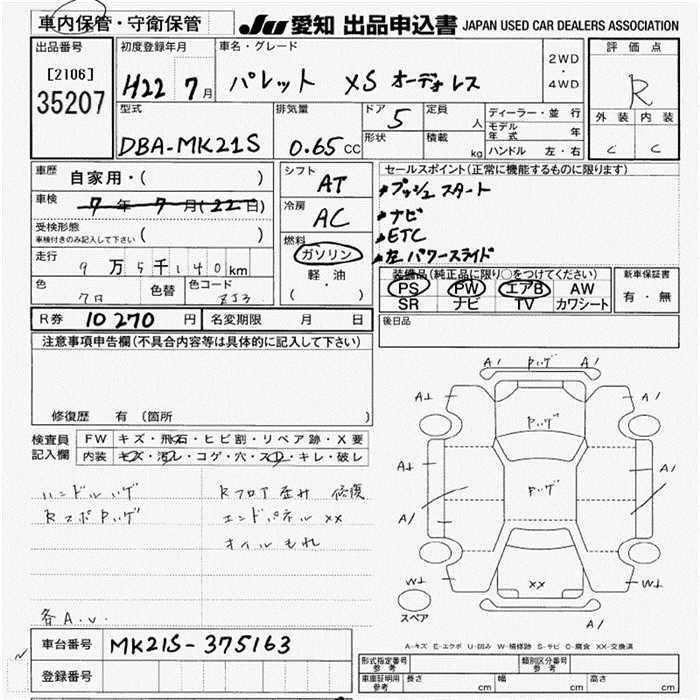 車内保管・守衛保管
JU 愛知 出品申込書 JAPAN USED CAR DEALERS ASSOCIATION
出品番号
[2106]
35207
初度登録年月
H22 7月
車名・グレード
パレット XS オーディオレス
2WD
・
4WD
評価点
R
外装 内装
C C
型式
DBA-MK21S
排気量
0.65cc
ドア 5
形状
定員 人
積載 kg
ディーラー・並行
モデル年式 年
ハンドル 左・右
車歴 自家用・( )
車検 7年7月(22日)
受検形態
車検付きのみ記入して下さい ( )
走行 9万5千140km
色 色替 色コード
ZJ3
シフト
AT
冷房
AC
燃料
ガソリン
軽油
( ・ )
セールスポイント(正常に機能するものに限ります)
プッシュスタート
ナビ
ETC
左パワースライド
装備品(純正品に限り○をつけてください)
PS PW エアB AW
SR ナビ TV カワシート
新車保証書
有・無
R券 10270 円
名変期限 月 日
後日品
注意事項申告欄(不具合内容等は具体的に記入して下さい)
修復歴 有 (箇所 )
検査員記入欄
FW キズ・飛石・ヒビ割・リペア跡・X要
内装 キズ・汚レ・コゲ・穴・スレ・キレ・破レ
ハンドルハゲ
RスポPハゲ
Rフロア歪み 修復
エンドパネルxx
オイルもれ
各A.U.
A1 Pハゲ A1
A1 Pハゲ A1
A1 Pハゲ A1
A1 A1
W1 xx W1
スペア
A-キズ E-エクボ U-凹み W-補修跡 S-サビ C-腐食 XX-交換済
車台番号 MK21S-375163
登録番号
形式指定番号 参考
類別区分番号 参考
車庫証明用 参考
長さ cm 幅 cm 高さ cm